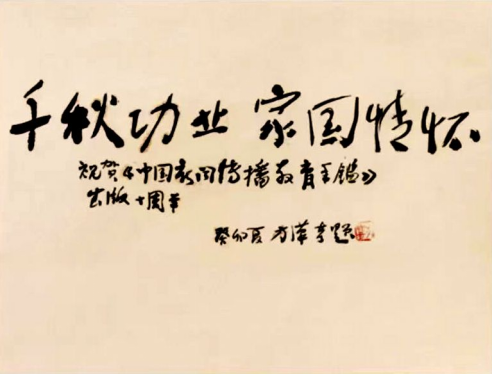 千秋功业 家国情怀
祝贺《中国新闻传播教育年鉴》
出版十周年
癸卯夏 方汉奇题